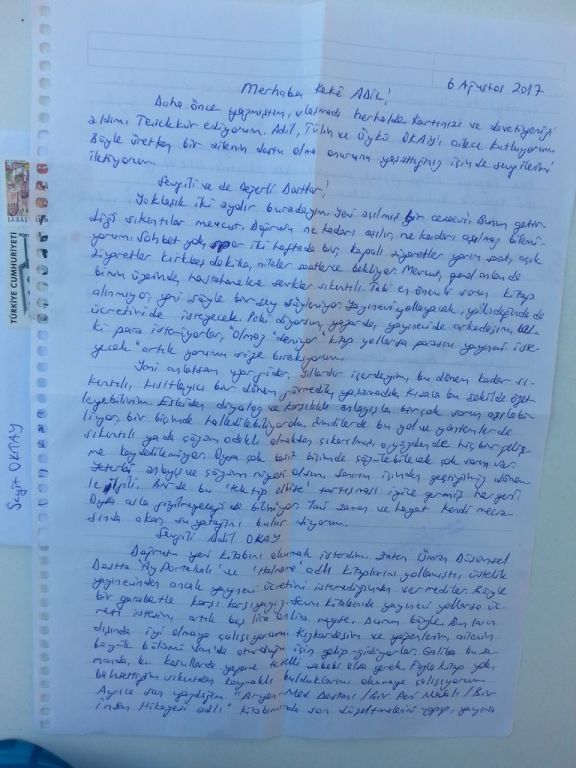 6 Ağustos 2017
Merhaba Kekê ADİL!
Daha önce yazmıştım, ulaşmadı herhalde. Kartınızı ve davetiyenizi
aldım. Teşekkür ediyorum. Adil, Tülin ve Öykü OKAY'ı ailece kutluyorum.
Böyle üretken bir ailenin dostu olma onurunu yaşattığınız için de sevgilerimi
iletiyorum.
Sevgili ve de Değerli Dostlar!
Yaklaşık iki aydır buradayım. Yeni açılmış bir cezaevi. Bunun getir-
diği sıkıntılar mevcut. Doğrusu ne kadarı aşılır, ne kadarı aşılmaz bilemi-
yorum. Sohbet yok, spor iki haftada bir, kapalı ziyaretler yarım saat, açık
ziyaretler kırkbeş dakika, aileler saatlerce bekliyor. Mevcut, genel anlamda
binin üzerinde, hastahane ve sevkler sıkıntılı. Tabi en önemli sorun kitap
alınmıyor, yeni şöyle bir şey söyleniyor. Yayınevi yollayacak, yollandığında da
ücretini de isteyecek. Peki diyorum, yazarda, yayınevi de arkadaşım,
ki para istemiyorlar, "olmaz" deniyor. "Kitap yollarsa parasını yayınevi iste-
yecek" artık yorumu size bırakıyorum.
Yani anlatsam uzar gider. Yıllardır içerdeyim, bu dönem kadar sı-
kıntılı, kısıtlayıcı bir dönem görmedim, yaşamadım. Kısaca bu şekilde özet-
leyebilirim. Eskiden diyalog ve karşılıklı anlayışla birçok sorun aşılabi-
liyor, bir biçimde halledilebiliyordu. Şimdilerde bu yol ve yöntemler de
sıkıntılı ya da çözüm odaklı olmaktan çıkarılmış, o yüzden de hiç bir geliş-
me kaydedilemiyor. Oysa çok basit biçimde çözülebilecek çok sorun var.
Yeterki anlayış ve çözüm niyeti olsun. Sanırım içinden geçtiğimiz dönem-
le ilgili. Bir de bu "tek tip elbise" tartışması iyice germiş her yeri.
Oysa asla giyilmeyeceği de biliniyor. Yani zaman ve hayat kendi mecra-
sında akar, su yatağını bulur diyorum.
Sevgili Adil OKAY
Doğrusu yeni kitabını okumak isterdim. Zaten Ümran Düşünsel
Dostta 'Ay Portakalı' ve 'Halname' adlı kitaplarını yollamıştı, üstelik
yayınevinden ancak yayınevi ücretini istemediğinden vermediler. Böyle
bir garabetle karşı karşıyayız. Senin kitabını da yayınevi yollarsa üc-
reti istesin, artık beş lira on lira neyse. Durum böyle. Bunların
dışında iyi olmaya çalışıyorum. Kızkardeşim ve yeğenlerim, ailenin
büyük bölümü Van'da oturduğu için gelip-gidiyorlar. Galiba bu za-
manda, bu koşullarda yegane teselli sebebi olsa gerek. Fazla kitap yok,
bahsettiğim sıkıntıdan kaynaklı bulduklarımı okumaya çalışıyorum.
Ayrıca son yazdığım "Aryen Med Destanı / Bir Peri Masalı / Bir
İnsan Hikayesi adlı" kitabımında son düzeltmelerini yapıp, yayına
Seyit OKTAY
TÜRKİYE CUMHURİYETİ